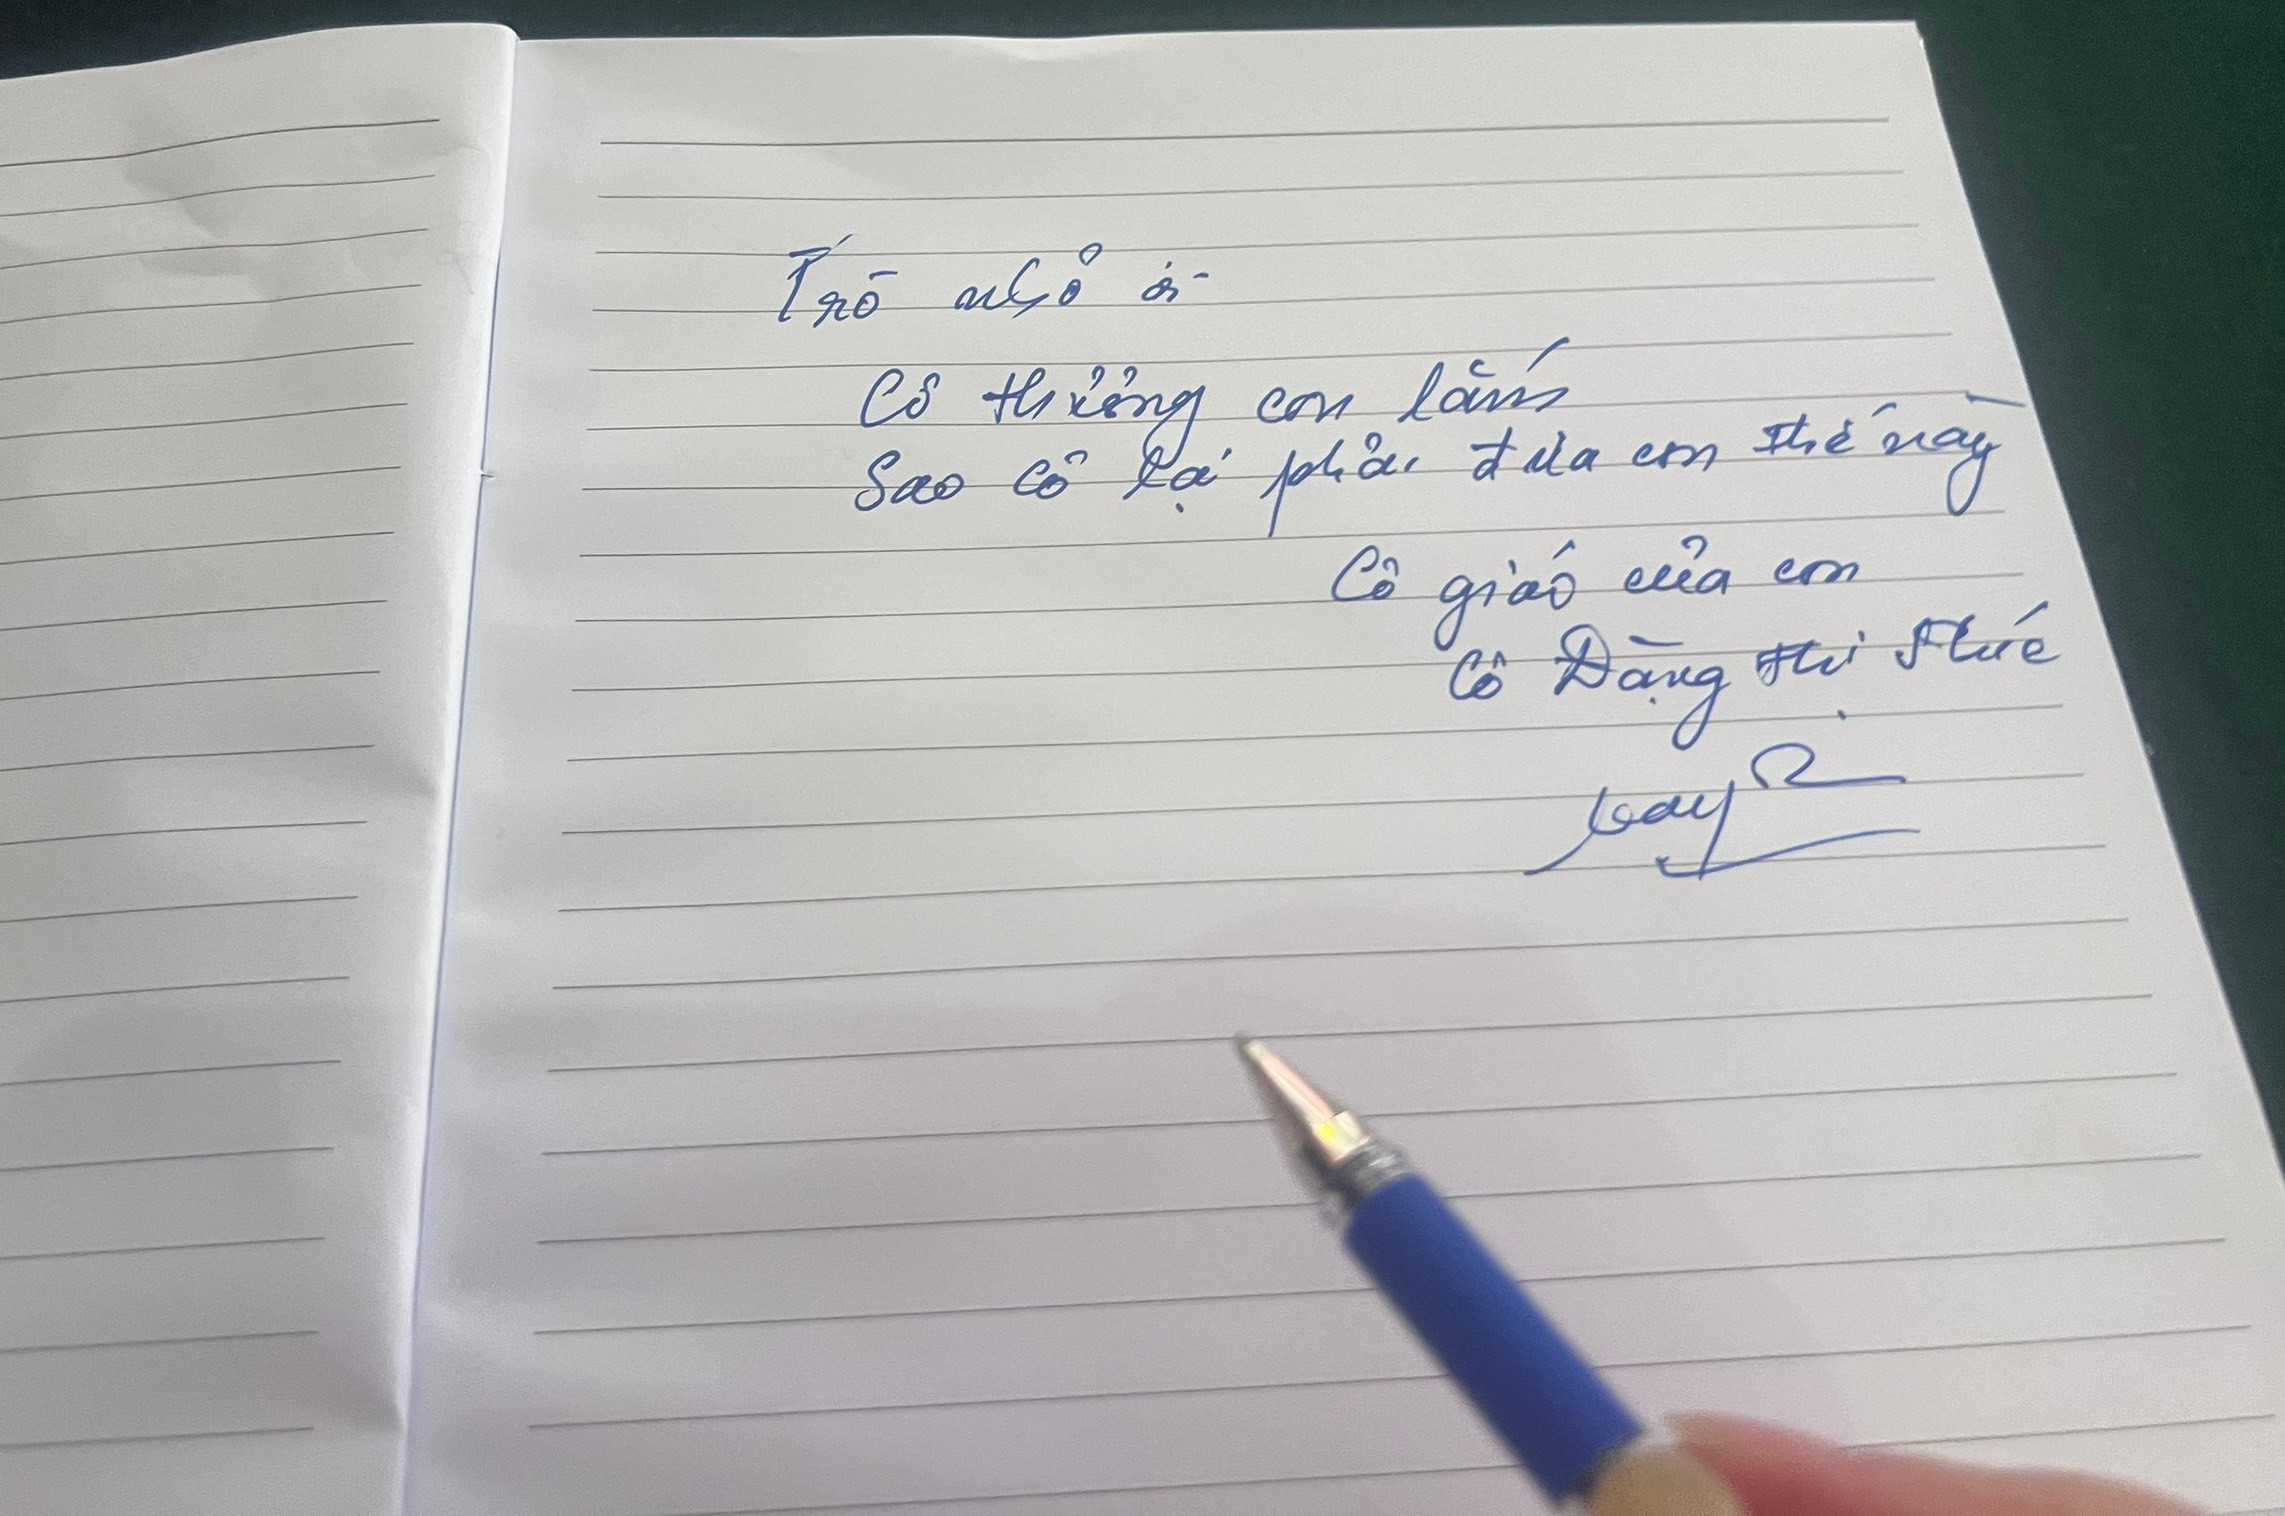 Trò nhỏ ơi
Cô thương con lắm
Sao cô lại phải đưa con thế này
Cô giáo của con
Cô Đặng Thị Thúc